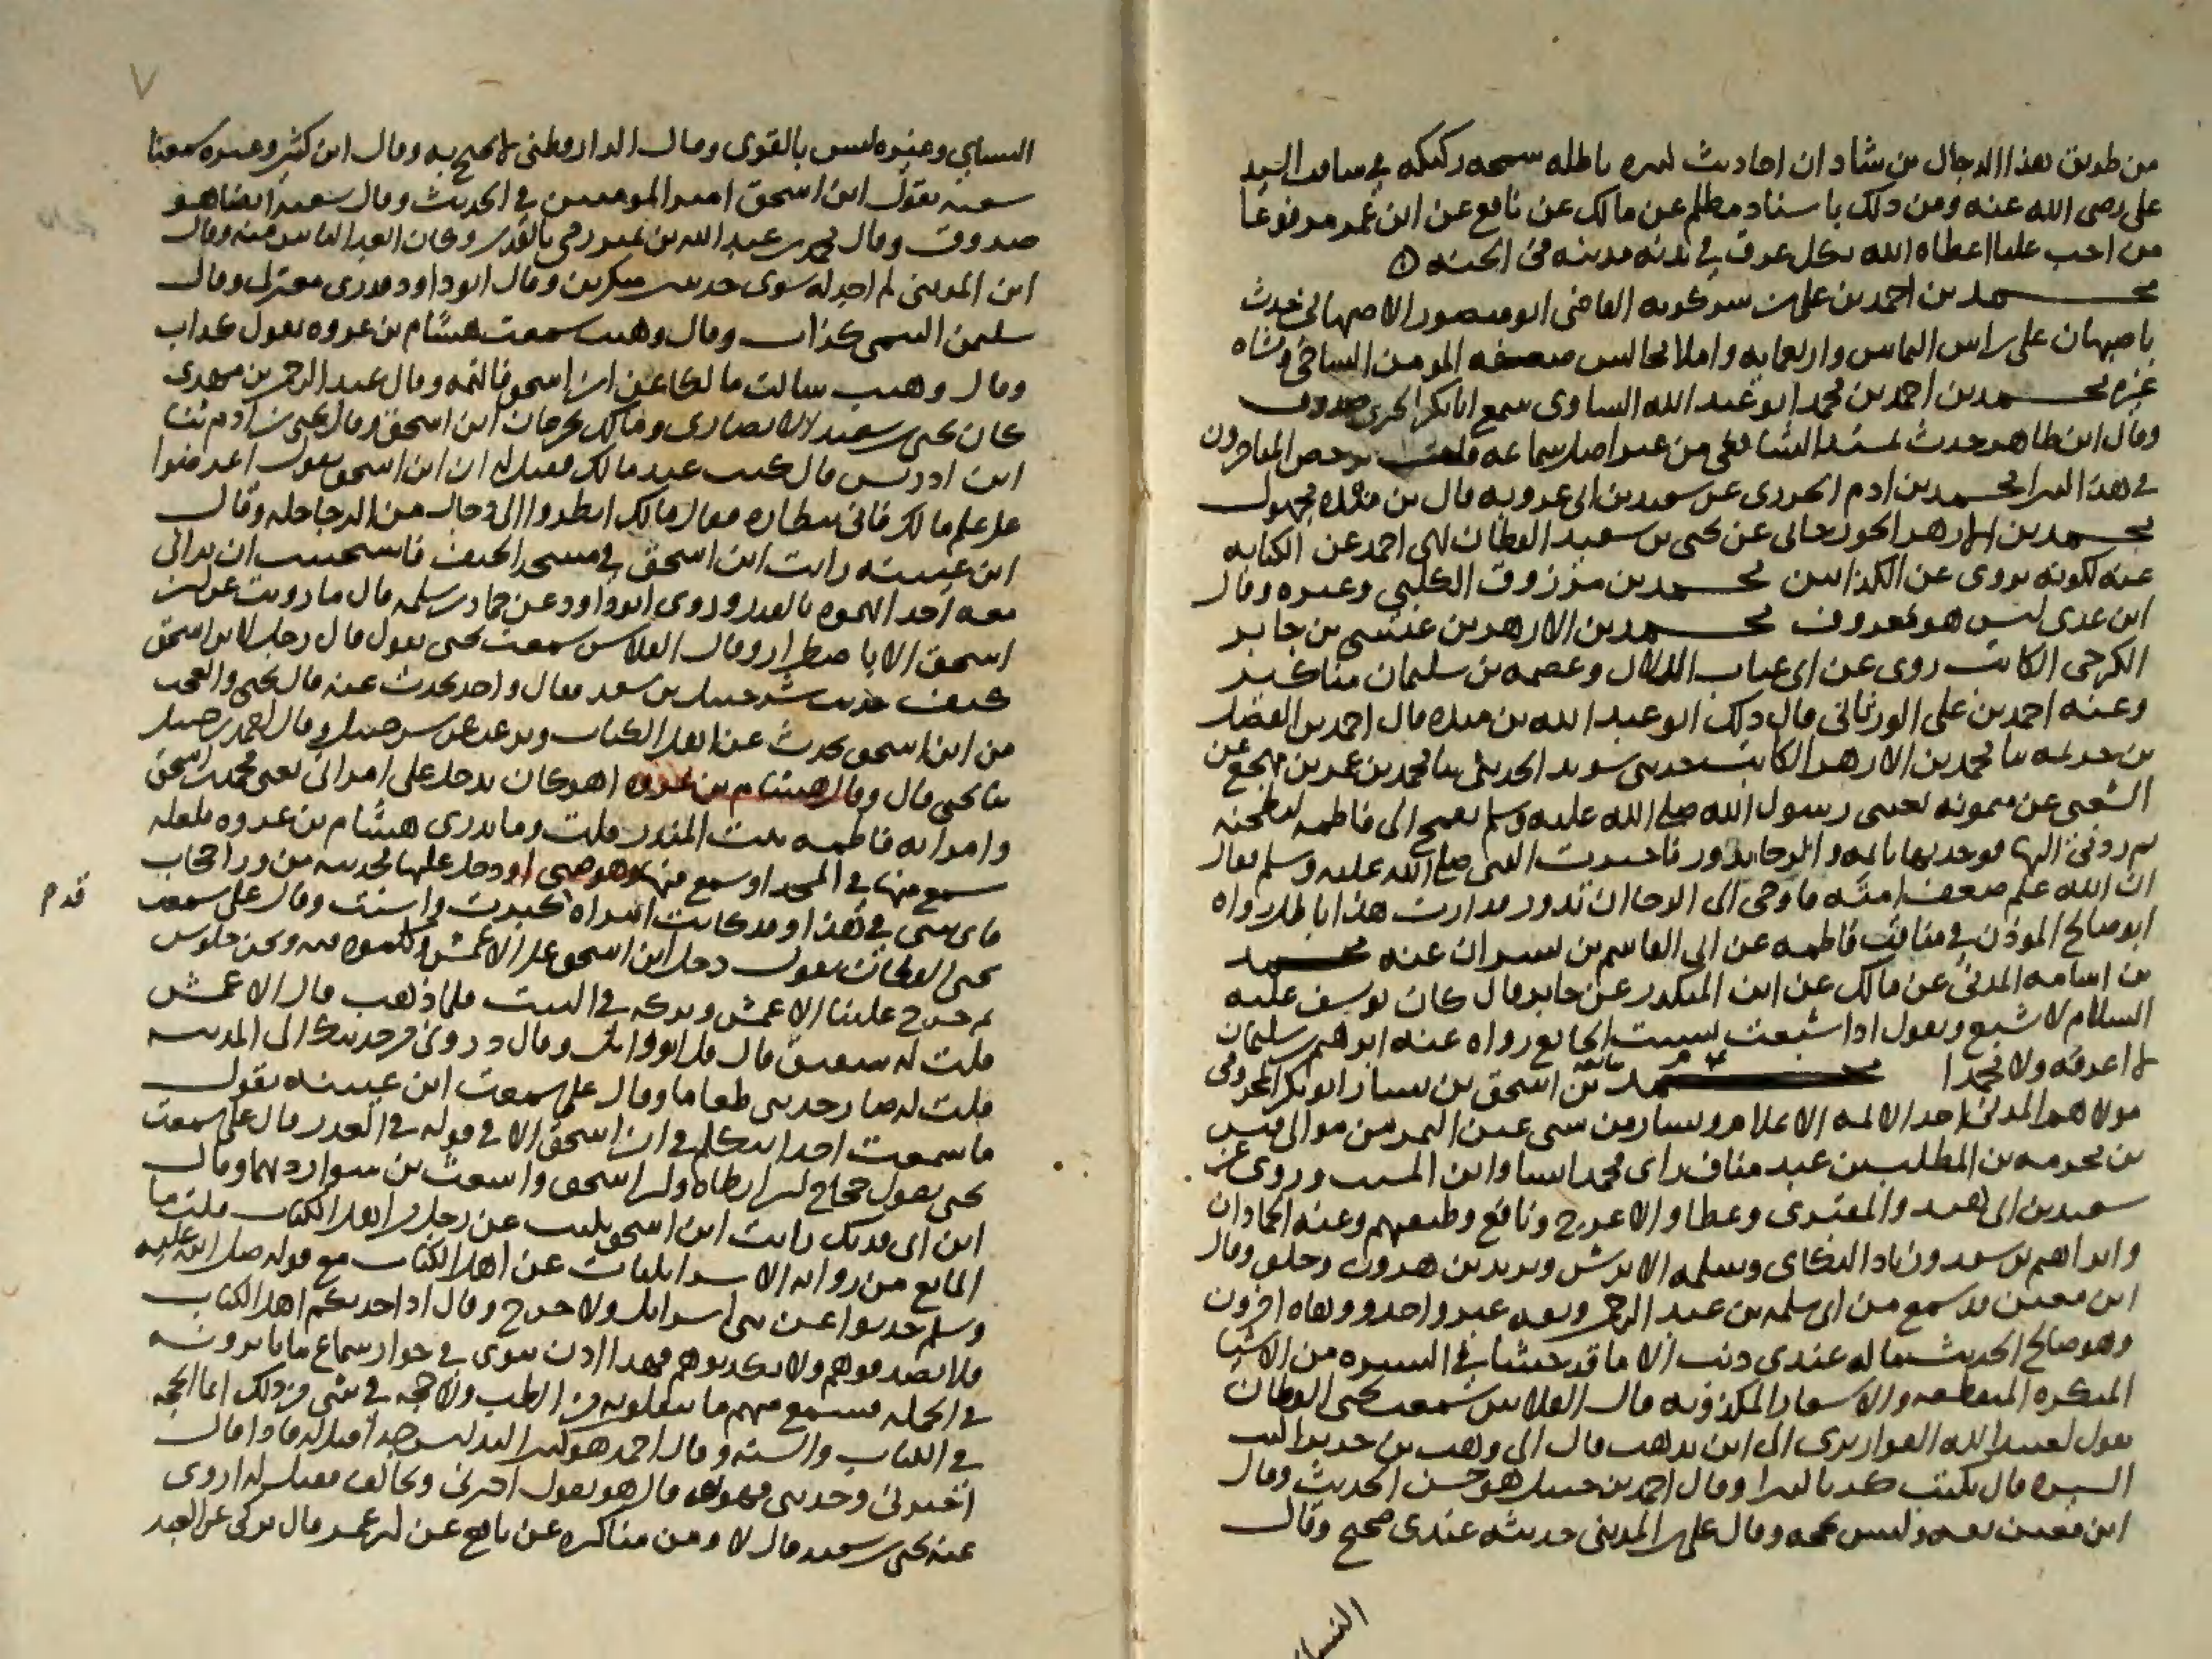 من طريق هذا الدجال بن شاذان احاديث كثيرة باطلة سمجة ركيكة في مناقب السيد
علي رضي الله عنه ومن ذلك باسناد مظلم عن مالك عن نافع عن ابن عمر مرفوعا
من احب عليا اعطاه الله بكل عرق في بدنه مدينة في الجنة
محمد بن احمد بن علي بن شكرويه القاضي ابو منصور الاصبهاني حدث
باصبهان على راس الثمانين واربعماية واملا مجالس ضعفه المؤتمن الساجي ومشاه
غيره محمد بن احمد بن محمد ابو عبد الله الساوي سمع ابا بكر الحيري صدوق
وقال ابن طاهر حدث بمسند الشافعي من غير اصل سماعه قلت ترخص المتاخرون
في هذا كثيرا محمد بن ادم الجزري عن سعيد بن ابي عروبة قال بن مندة مجهول
محمد بن الازهر الجوزجاني عن يحيى بن سعيد القطان نهى احمد عن الكتابة
عنه لكونه يروي عن الكذابين محمد بن مرزوق الكلبي وغيره وقال
ابن عدي ليس هو بمعروف محمد بن الازهر بن عيسى بن جابر
الكرخي الكاتب روى عن ابي عتاب الدلال وعصمة بن سليمان مناكير
وعنه احمد بن علي الورثاني قال ذلك ابو عبد الله بن مندة قال احمد بن الفضل
بن خزيمة ثنا محمد بن الازهر الكاتب حدثني سويد الحدثي ثنا محمد بن عمر بن مجمع عن
الشعبي عن ميمونة بعثني رسول الله صلى الله عليه وسلم بقمح الى فاطمة لتطحنه
ثم ردني اليها فوجدتها نائمة والرحا تدور فاخبرت النبي صلى الله عليه وسلم فقال
ان الله علم ضعف امته فاوحى الى الرحا ان تدور فدارت هذا باطل رواه
ابو صالح المؤذن في مناقب فاطمة عن ابي القاسم بن بشران عنه محمد
بن اسامة المدني عن مالك عن ابن المنكدر عن جابر قال كان يوسف عليه
السلام لا يشبع ويقول اذا شبعت نسيت الجائع رواه عنه ابراهيم بن سليمان
لا اعرفه ولا محمدا محمد بن اسحق بن يسار ابو بكر المخرمي
مولاهم المدني احد الائمة الاعلام ويسار من سبي عين التمر من موالي قيس
بن مخرمة بن المطلب بن عبد مناف راى محمد انسا وابن المسيب وروى عن
سعيد بن ابي هند والمقبري وعطا والاعرج ونافع وطبقتهم وعنه الحمادان
وابراهيم بن سعد وزياد البكاي وسلمة الابرش ويزيد بن هرون وخلق وقال
ابن معين قد سمع من ابي سلمة بن عبد الرحمن وثقه غير واحد ووهاه اخرون
وهو صالح الحديث ماله عندي ذنب الا ما قد حشا في السيرة من الاشيا
المنكرة المنقطعة والاشعار المكذوبة قال الفلاس سمعت يحيى القطان
يقول لعبيد الله القواريري الى اين تذهب قال الى وهب بن جرير اكتب
السيرة قال تكتب كذبا كثيرا وقال احمد بن حنبل هو حسن الحديث وقال
ابن معين ثقة وليس بحجة وقال علي بن المديني حديثه عندي صحيح وقال
النسا
٧
النسايي وغيره ليس بالقوي وقال الدارقطني لا يحتج به وقال ابن كثير وغيره سمعنا
شعبة يقول ابن اسحق امير المؤمنين في الحديث وقال شعبة ايضا هو
صدوق وقال محمد بن عبد الله بن نمير رمي بالقدر وكان ابعد الناس منه وقال
ابن المديني لم اجد له سوى حديثين منكرين وقال ابو داود قدري معتزلي وقال
سليمن التيمي كذاب وقال وهيب سمعت هشام بن عروة يقول كذاب
وقال وهيب سالت مالكا عن ابن اسحق فاتهمه وقال عبد الرحمن بن مهدي
كان يحيى بن سعيد الانصاري ومالك يجرحان ابن اسحق وقال يحيى بن ادم ثنا
ابن ادريس قال كنت عند مالك فقيل له ان ابن اسحق يقول اعرضوا
علي علم مالك فاني بيطاره فقال مالك انظروا الى دجال من الدجاجلة وقال
ابن عيينة رايت ابن اسحق في مسجد الخيف فاستحييت ان يراني
معه احد اتهموه بالقدر وروى ابو داود عن حماد بن سلمة قال ما رويت عن ابن
اسحق الا باضطرار وقال الفلاس سمعت يحيى يقول قال رجل لابن اسحق
كيف حديث شرحبيل بن سعد فقال واحد يحدث عنه قال يحيى والعجب
من ابن اسحق يحدث عن اهل الكتاب ويرغب عن شرحبيل وقال احمد بن حنبل
ثنا يحيى قال وقال هشام بن عروة اهو كان يدخل على امراتي يعني محمد بن اسحق
وامراته فاطمة بنت المنذر قلت وما يدري هشام بن عروة فلعله
سمع منها في المسجد او سمع منها وهو صبي او دخل عليها فحدثته من ورا حجاب
فاي شي في هذا وقد كانت امراة كبرت واسنت وقال علي سمعت
قدم
يحيى القطان يقول دخل ابن اسحق على الاعمش وكلموه فيه ونحن جلوس
ثم خرج علينا الاعمش وتركه في البيت فلما ذهب قال الاعمش
قلت له شقيق قال قل ابو وائل وقال زودني من حديثك الى المدينة
قلت له صار حديثي طعاما وقال علي سمعت ابن عيينة يقول
ما سمعت احدا يتكلم في ابن اسحق الا في قوله في القدر قال علي سمعت
يحيى يقول حجاج بن ارطاة وابن اسحق واشعث بن سوار دونهما وقال
ابن ابي فديك رايت ابن اسحق يكتب عن رجل من اهل الكتاب قلت ما
المانع من رواية الاسرائيليات عن اهل الكتاب مع قوله صلى الله عليه
وسلم حدثوا عن بني اسرائيل ولا حرج وقال اذا حدثكم اهل الكتاب
فلا تصدقوهم ولا تكذبوهم فهذا اذن نبوي في جواز سماع ما ياثرونه
في الجملة فنسمع منهم ما ينقلونه من الطب ولا حجة في شي من ذلك انما الحجة
في الكتاب والسنة وقال احمد هو كثير التدليس جدا قيل له فاذا قال
اخبرني وحدثني فهو ثقة قال هو يقول اخبرني ويخالف فقيل له اروى
عنه يحيى بن سعيد قال لا ومن مناكره عن نافع عن ابن عمر قال يزكى عن العبد